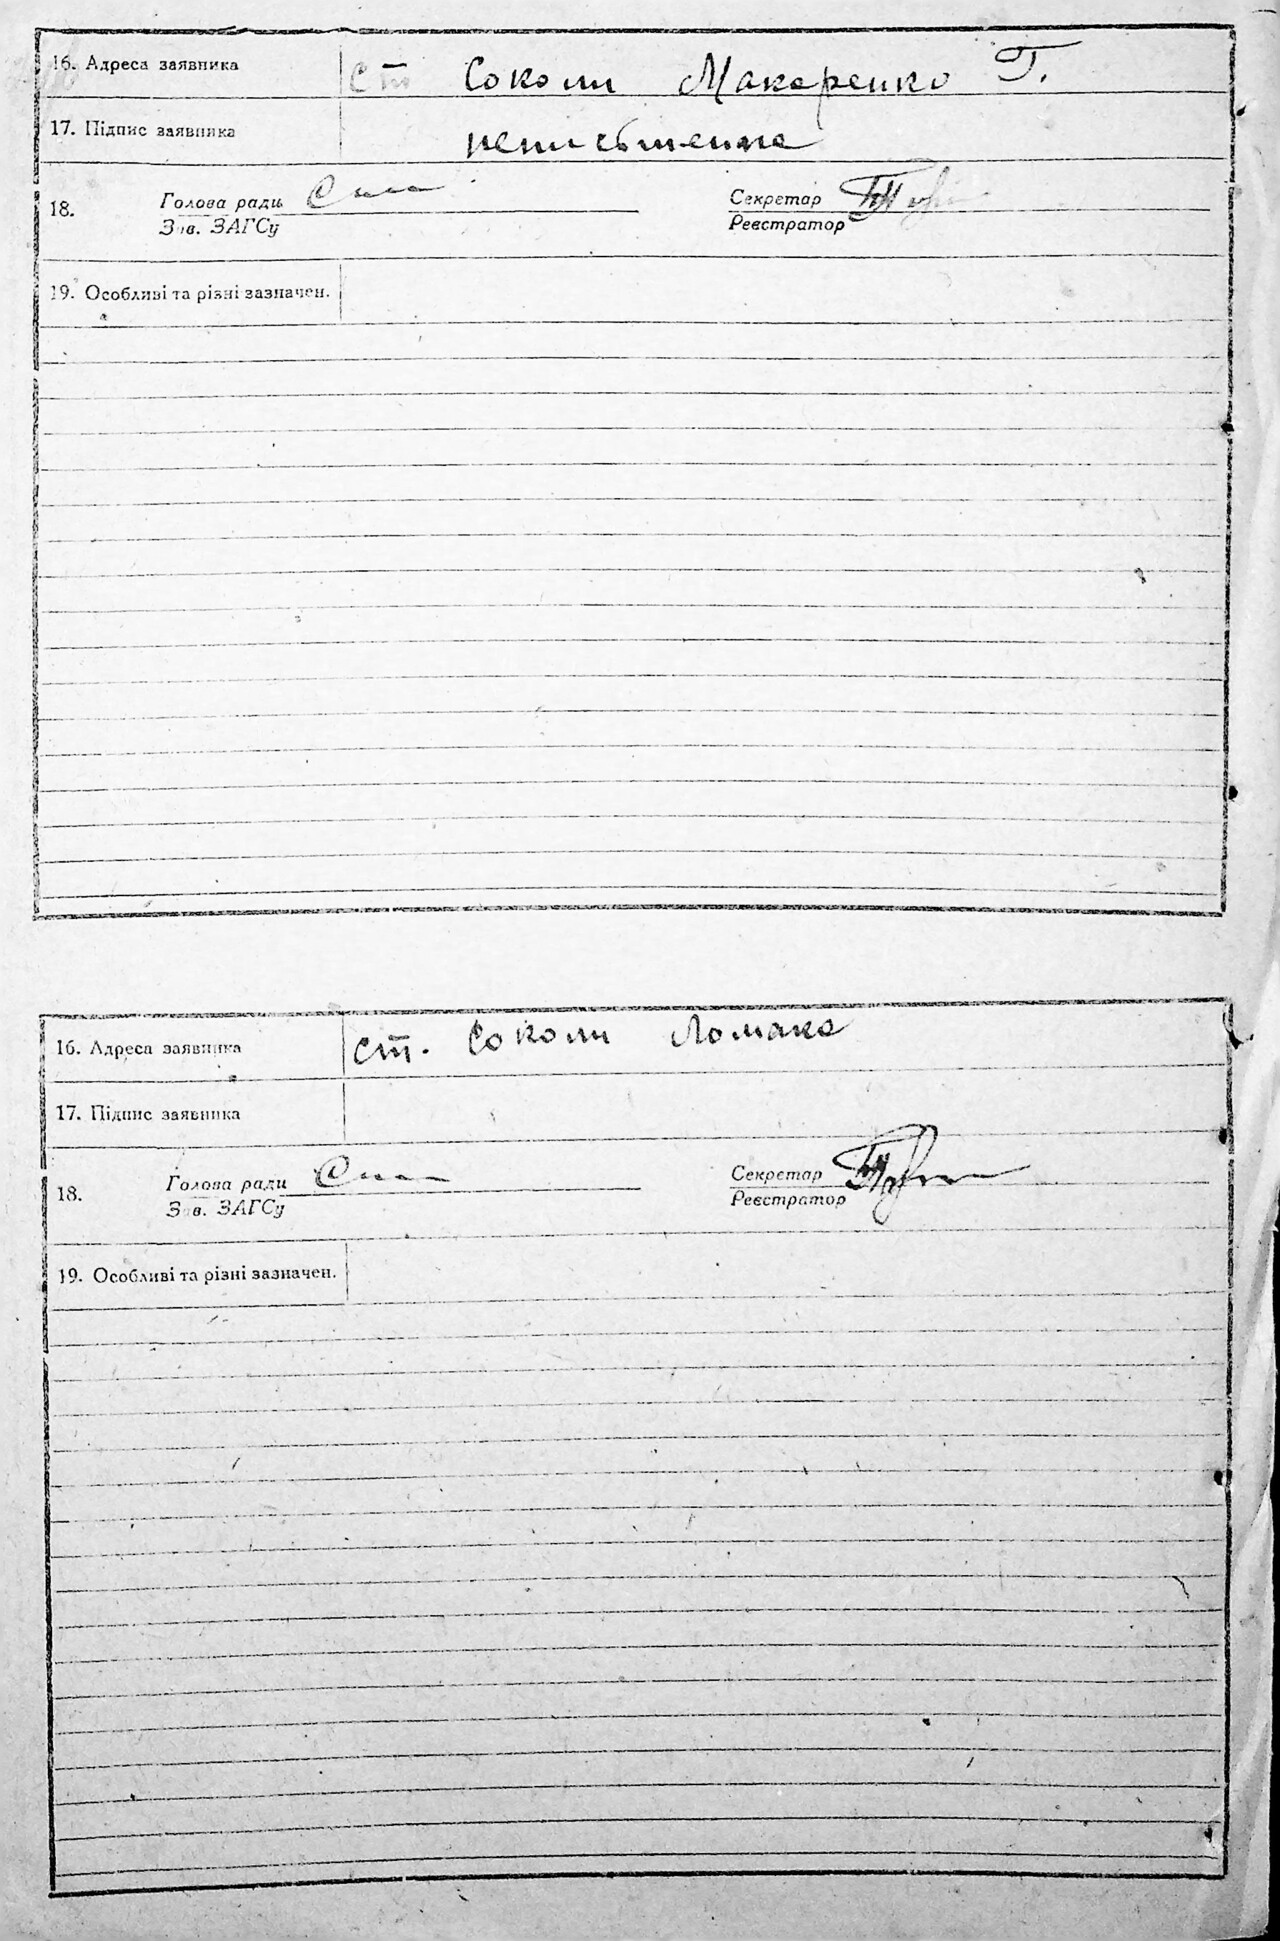 16. Адреса заявника ст Соколи Макаренко Г.
17. Підпис заявника неписьменна
18. Голова ради Секретар
Зав. ЗАГСу Реєстратор
19. Особливі та різні зазначен.
16. Адреса заявника ст. Соколи Ломака
17. Підпис заявника
18. Голова ради Секретар
Зав. ЗАГСу Реєстратор
19. Особливі та різні зазначен.